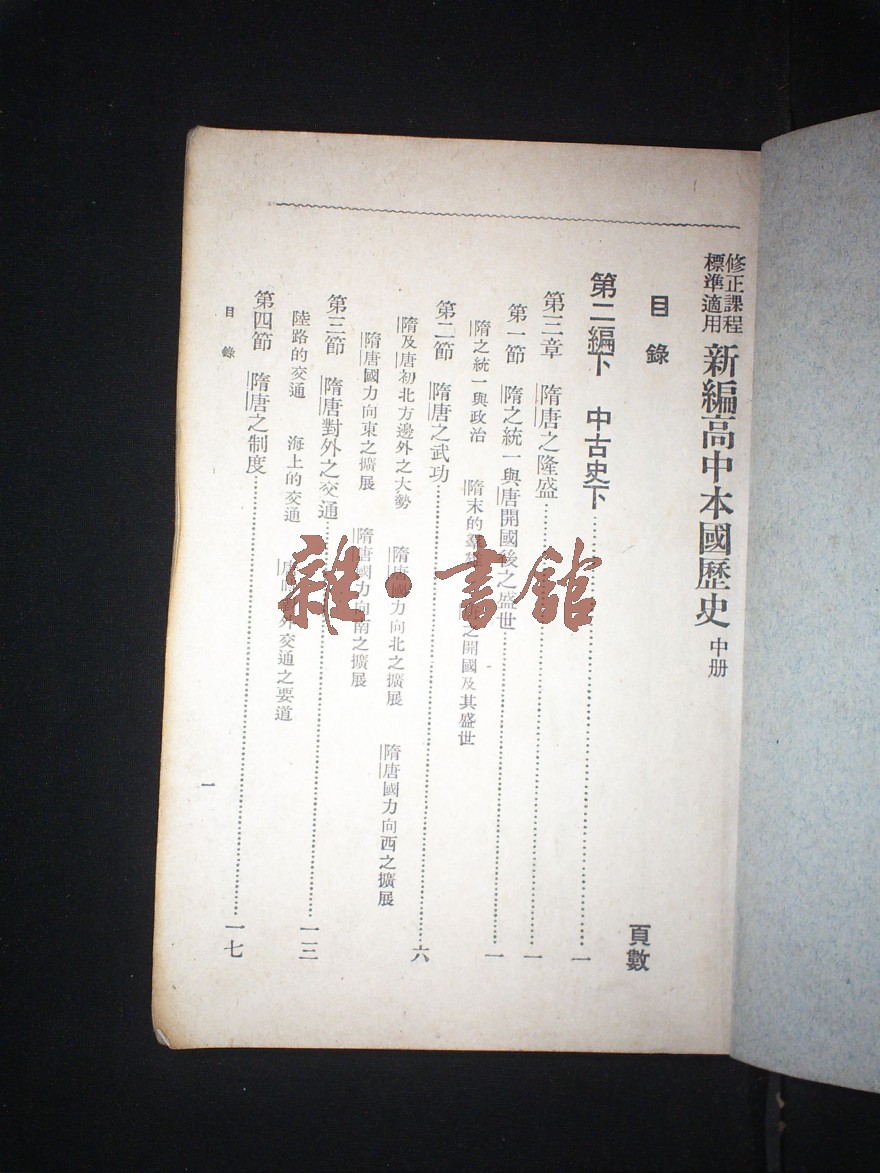 修正課程
標準適用
新編高中本國歷史 中册
目錄
頁數
第二編下 中古史下……一
第三章 隋唐之隆盛……一
第一節 隋之統一與唐開國後之盛世……一
隋之統一與政治 隋末的羣 之開國及其盛世
第二節 隋唐之武功……六
隋及唐初北方邊外之大勢 隋唐國力向北之擴展 隋唐國力向西之擴展
隋唐國力向東之擴展 隋唐國力向南之擴展
第三節 隋唐對外之交通……一三
陸路的交通 海上的交通 唐時對外交通之要道
第四節 隋唐之制度……一七
目錄
一
雜·書舘